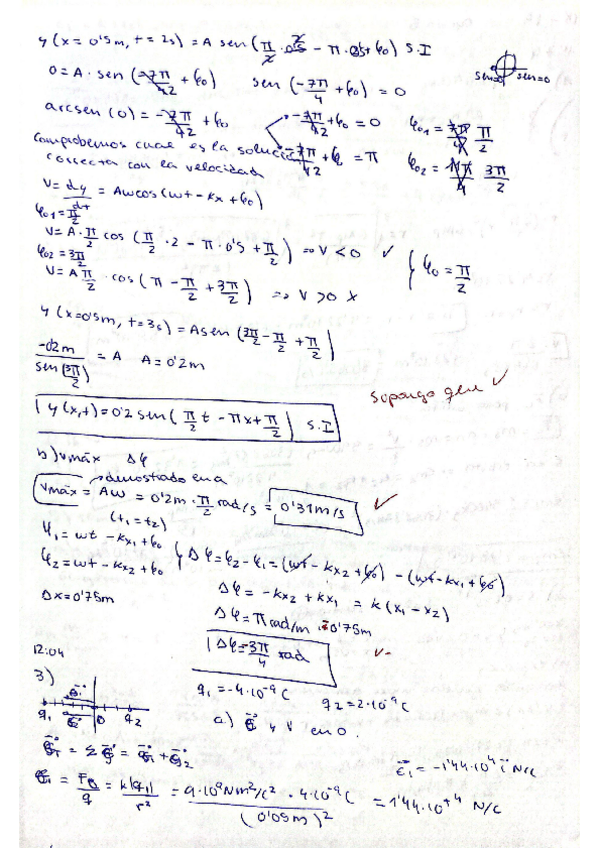 y (x = 0'5m, t = 2s) = A sen (π/2 · 2 - π · 0'5 + φ0) S.I
0 = A · sen ( + φ0)   sen (-7π/4 + φ0) = 0   sen=0 sen=0
arcsen (0) = + φ0   + φ0 = 0   φ01 = π/2
Comprobemos cual es la solución   + φ0 = π   φ02 = 3π/2
correcta con la velocidad
v = dy/dt = Aω cos (ωt - kx + φ0)
φ01 = π/2
v = A · π/2 cos (π/2 · 2 - π · 0'5 + π/2) => v < 0 ✓
φ02 = 3π/2   { φ0 = π/2
v = A π/2 · cos (π - π/2 + 3π/2) => v > 0 x
y (x=0'5m, t=3s) = A sen (3π/2 - π/2 + π/2)
-0'2m / sen (3π/2) = A   A = 0'2m
Supongo que ✓
y (x,t) = 0'2 sen (π/2 t - πx + π/2) S.I
b) vmáx   Δφ
demostrado en a
vmáx = Aω = 0'2m · π/2 rad/s = 0'31m/s ✓
(t1 = t2)
φ1 = ωt - kx1 + φ0
φ2 = ωt - kx2 + φ0   Δφ = φ2 - φ1 = (ωt - kx2 + φ0) - (ωt - kx1 + φ0)
Δφ = -kx2 + kx1 = k (x1 - x2)
Δx = 0'75m   Δφ = π rad/m · 0'75m
Δφ = 3π/4 rad
12:04
3)   q1 = -4·10⁻⁹ C   q2 = 2·10⁻⁹ C
q1 0 q2   a) y V en 0.
= Σ = +
E1 = -1'44·10⁴ i N/C
= = k|q1|/r² = 9·10⁹ Nm²/C² · 4·10⁻⁹ C / (0'05m)² = 1'44·10⁺⁴ N/C